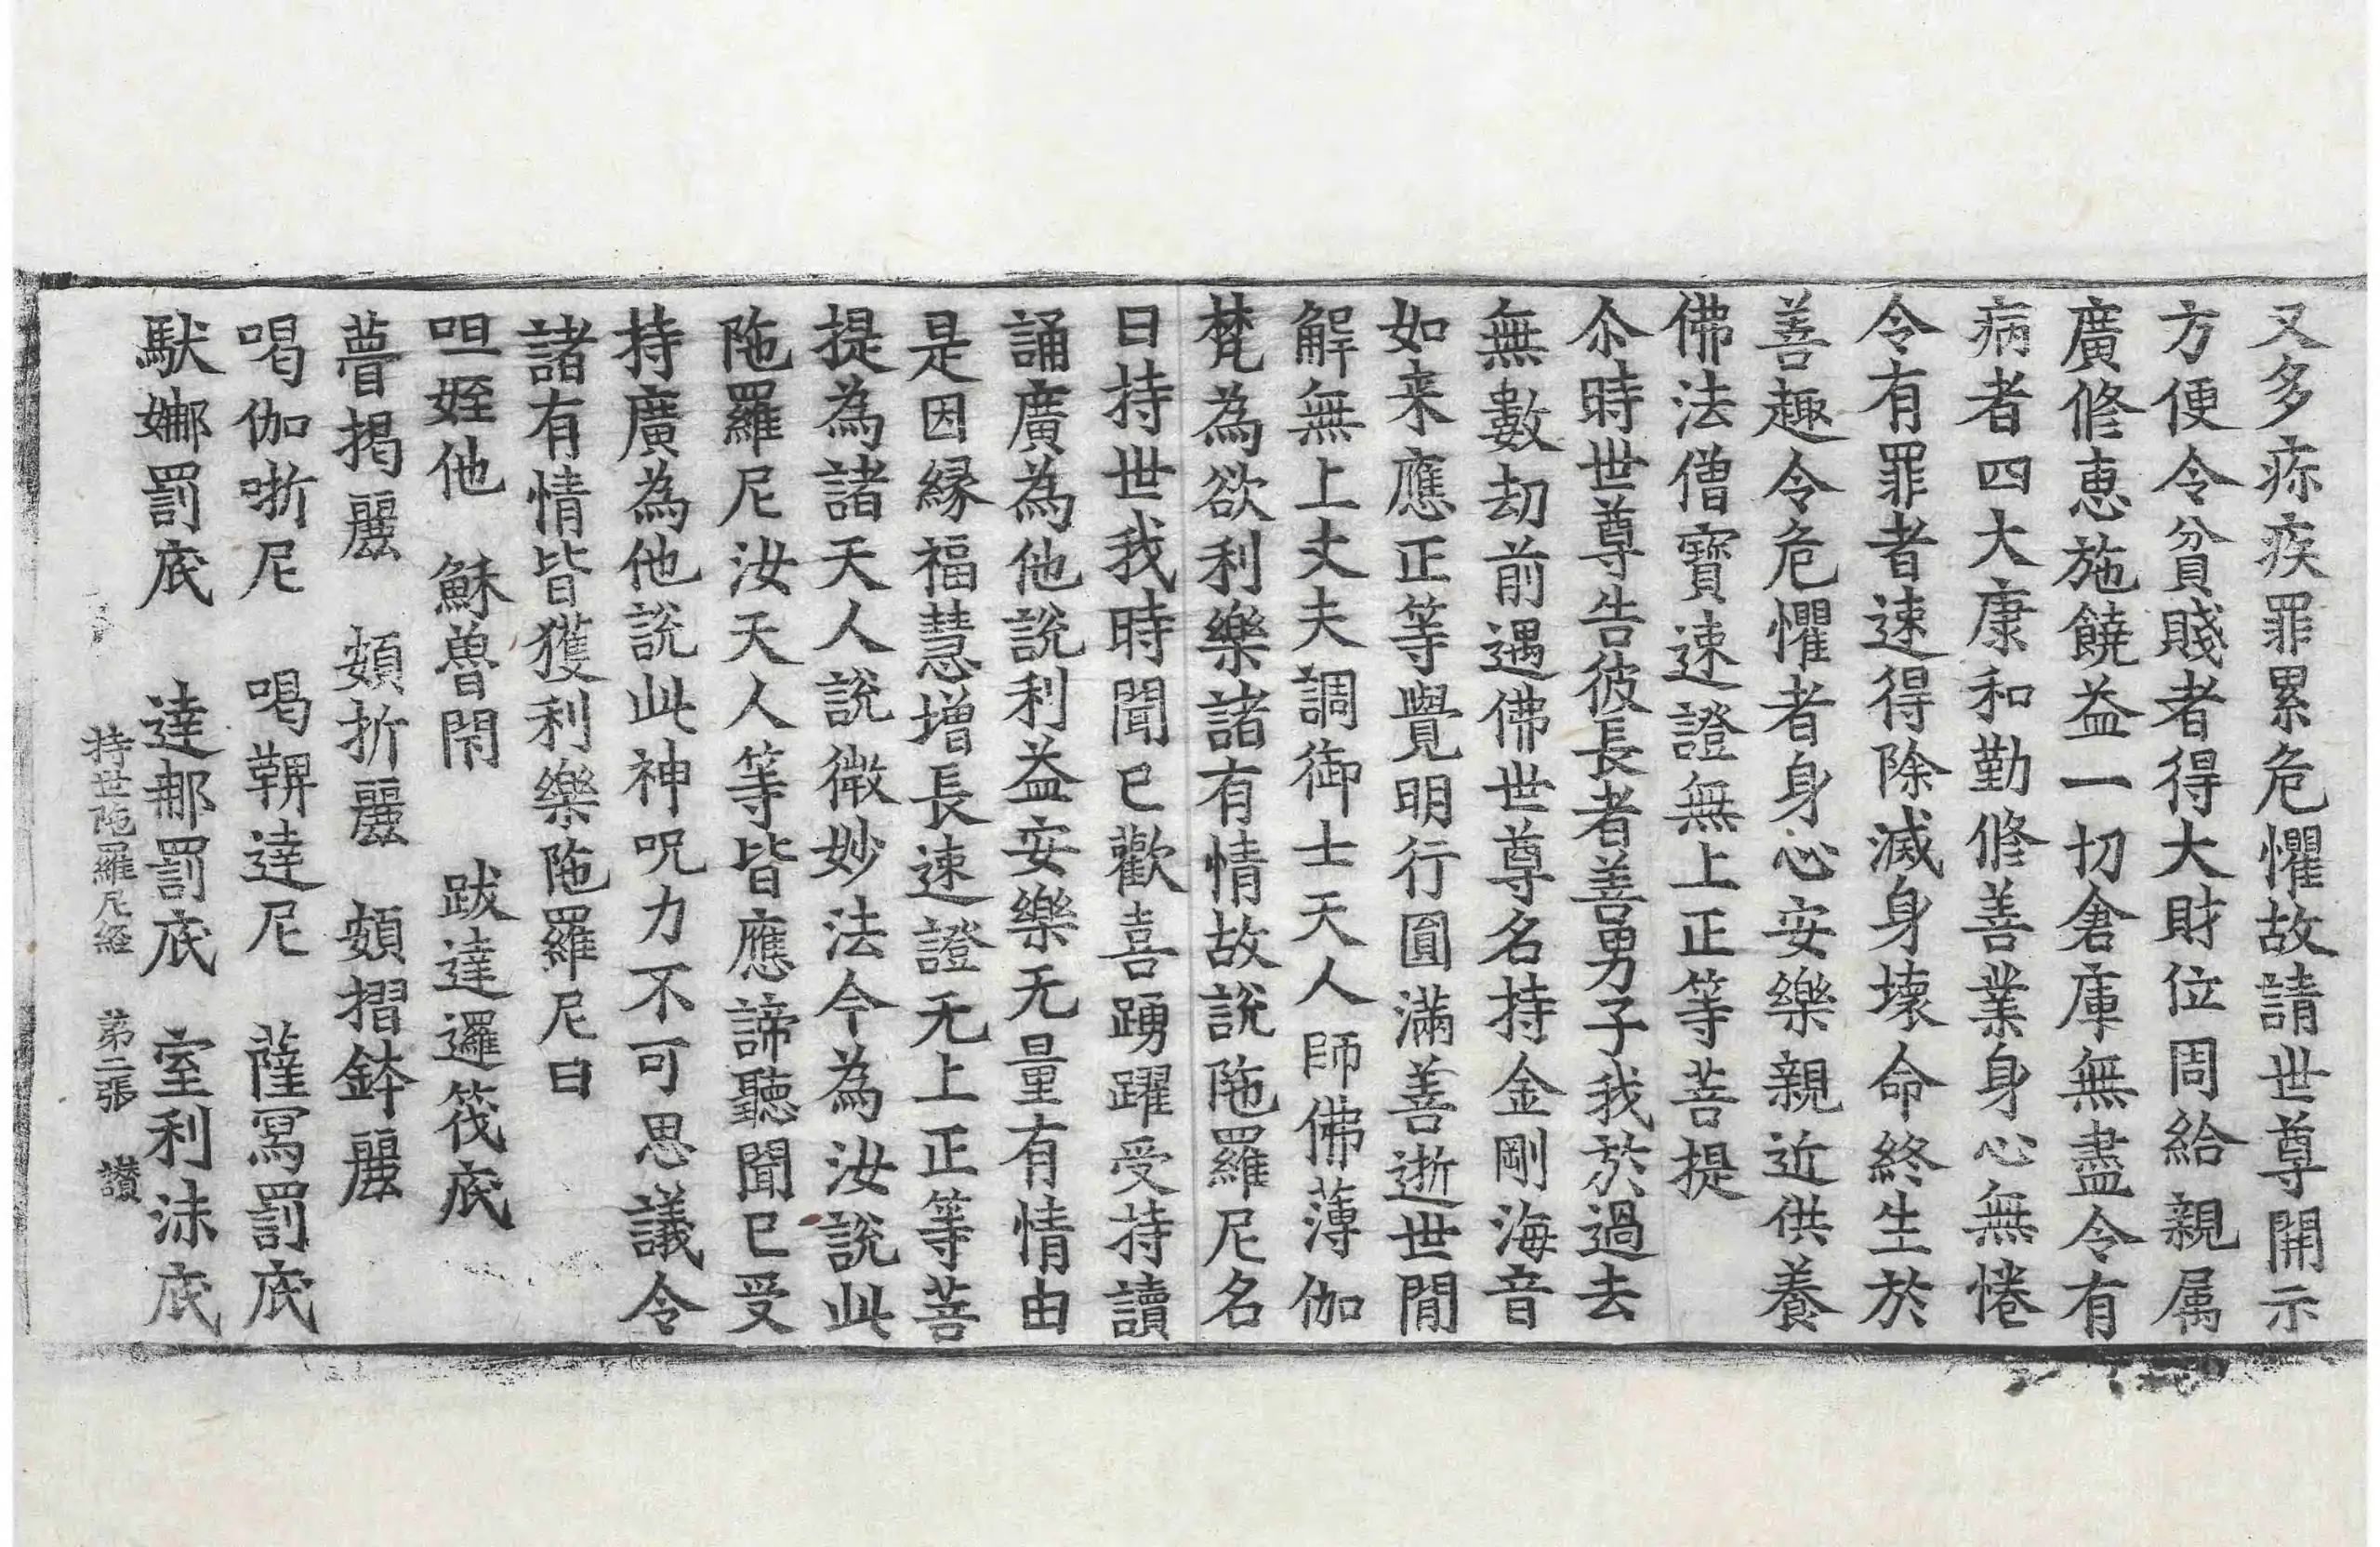 又多疹疾罪累危懼故請世尊開示
方便令貧賤者得大財位周給親属
廣修惠施饒益一切倉庫無盡令有
病者四大康和勤修善業身心無惓
令有罪者速得除滅身壞命終生於
善趣令危懼者身心安樂親近供養
佛法僧寶速證無上正等菩提
尒時世尊告彼長者善男子我於過去
無數劫前遇佛世尊名持金剛海音
如来應正等覺明行圓滿善逝世間
解無上丈夫調御士天人師佛薄伽
梵為欲利樂諸有情故說陁羅尼名
曰持世我時聞已歡喜踴躍受持讀
誦廣為他說利益安樂无量有情由
是因緣福慧增長速證无上正等菩
提為諸天人說微妙法今為汝說此
陁羅尼汝天人等皆應諦聽聞已受
持廣為他說此神呪力不可思議令
諸有情皆獲利樂陁羅尼曰
呾姪他　穌魯閇　跋達邏筏底
瞢揭麗　頞折麗　頞摺鉢麗
喝伽哳尼　喝鞞達尼　薩寫罰底
馱娜罰底　達那罰底　室利沫底
持世陁羅尼經　第二張　讃